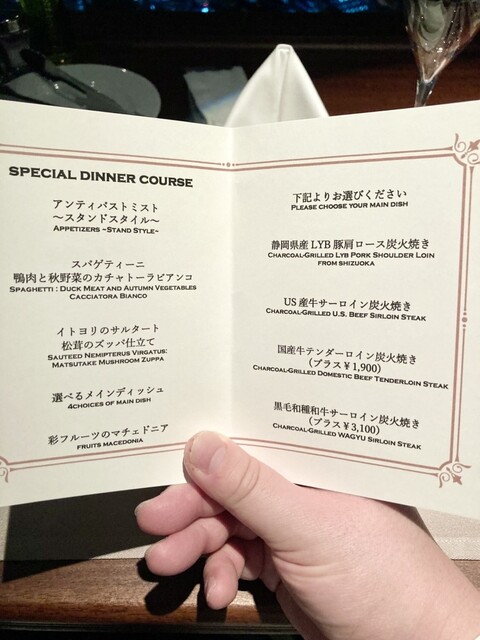 SPECIAL DINNER COURSE
アンティパストミスト
～スタンドスタイル～
APPETIZERS ~STAND STYLE~
スパゲティーニ
鴨肉と秋野菜のカチャトーラビアンコ
SPAGHETTI : DUCK MEAT AND AUTUMN VEGETABLES
CACCIATORA BIANCO
イトヨリのサルタート
松茸のズッパ仕立て
SAUTEED NEMIPTERUS VIRGATUS:
MATSUTAKE MUSHROOM ZUPPA
選べるメインディッシュ
4CHOICES OF MAIN DISH
彩フルーツのマチェドニア
FRUITS MACEDONIA
下記よりお選びください
PLEASE CHOOSE YOUR MAIN DISH
静岡県産 LYB 豚肩ロース炭火焼き
CHARCOAL-GRILLED LYB PORK SHOULDER LOIN
FROM SHIZUOKA
US 産牛サーロイン炭火焼き
CHARCOAL-GRILLED U.S. BEEF SIRLOIN STEAK
国産牛テンダーロイン炭火焼き
(プラス￥1,900)
CHARCOAL-GRILLED DOMESTIC BEEF TENDERLOIN STEAK
黒毛和種和牛サーロイン炭火焼き
(プラス￥3,100)
CHARCOAL-GRILLED WAGYU SIRLOIN STEAK